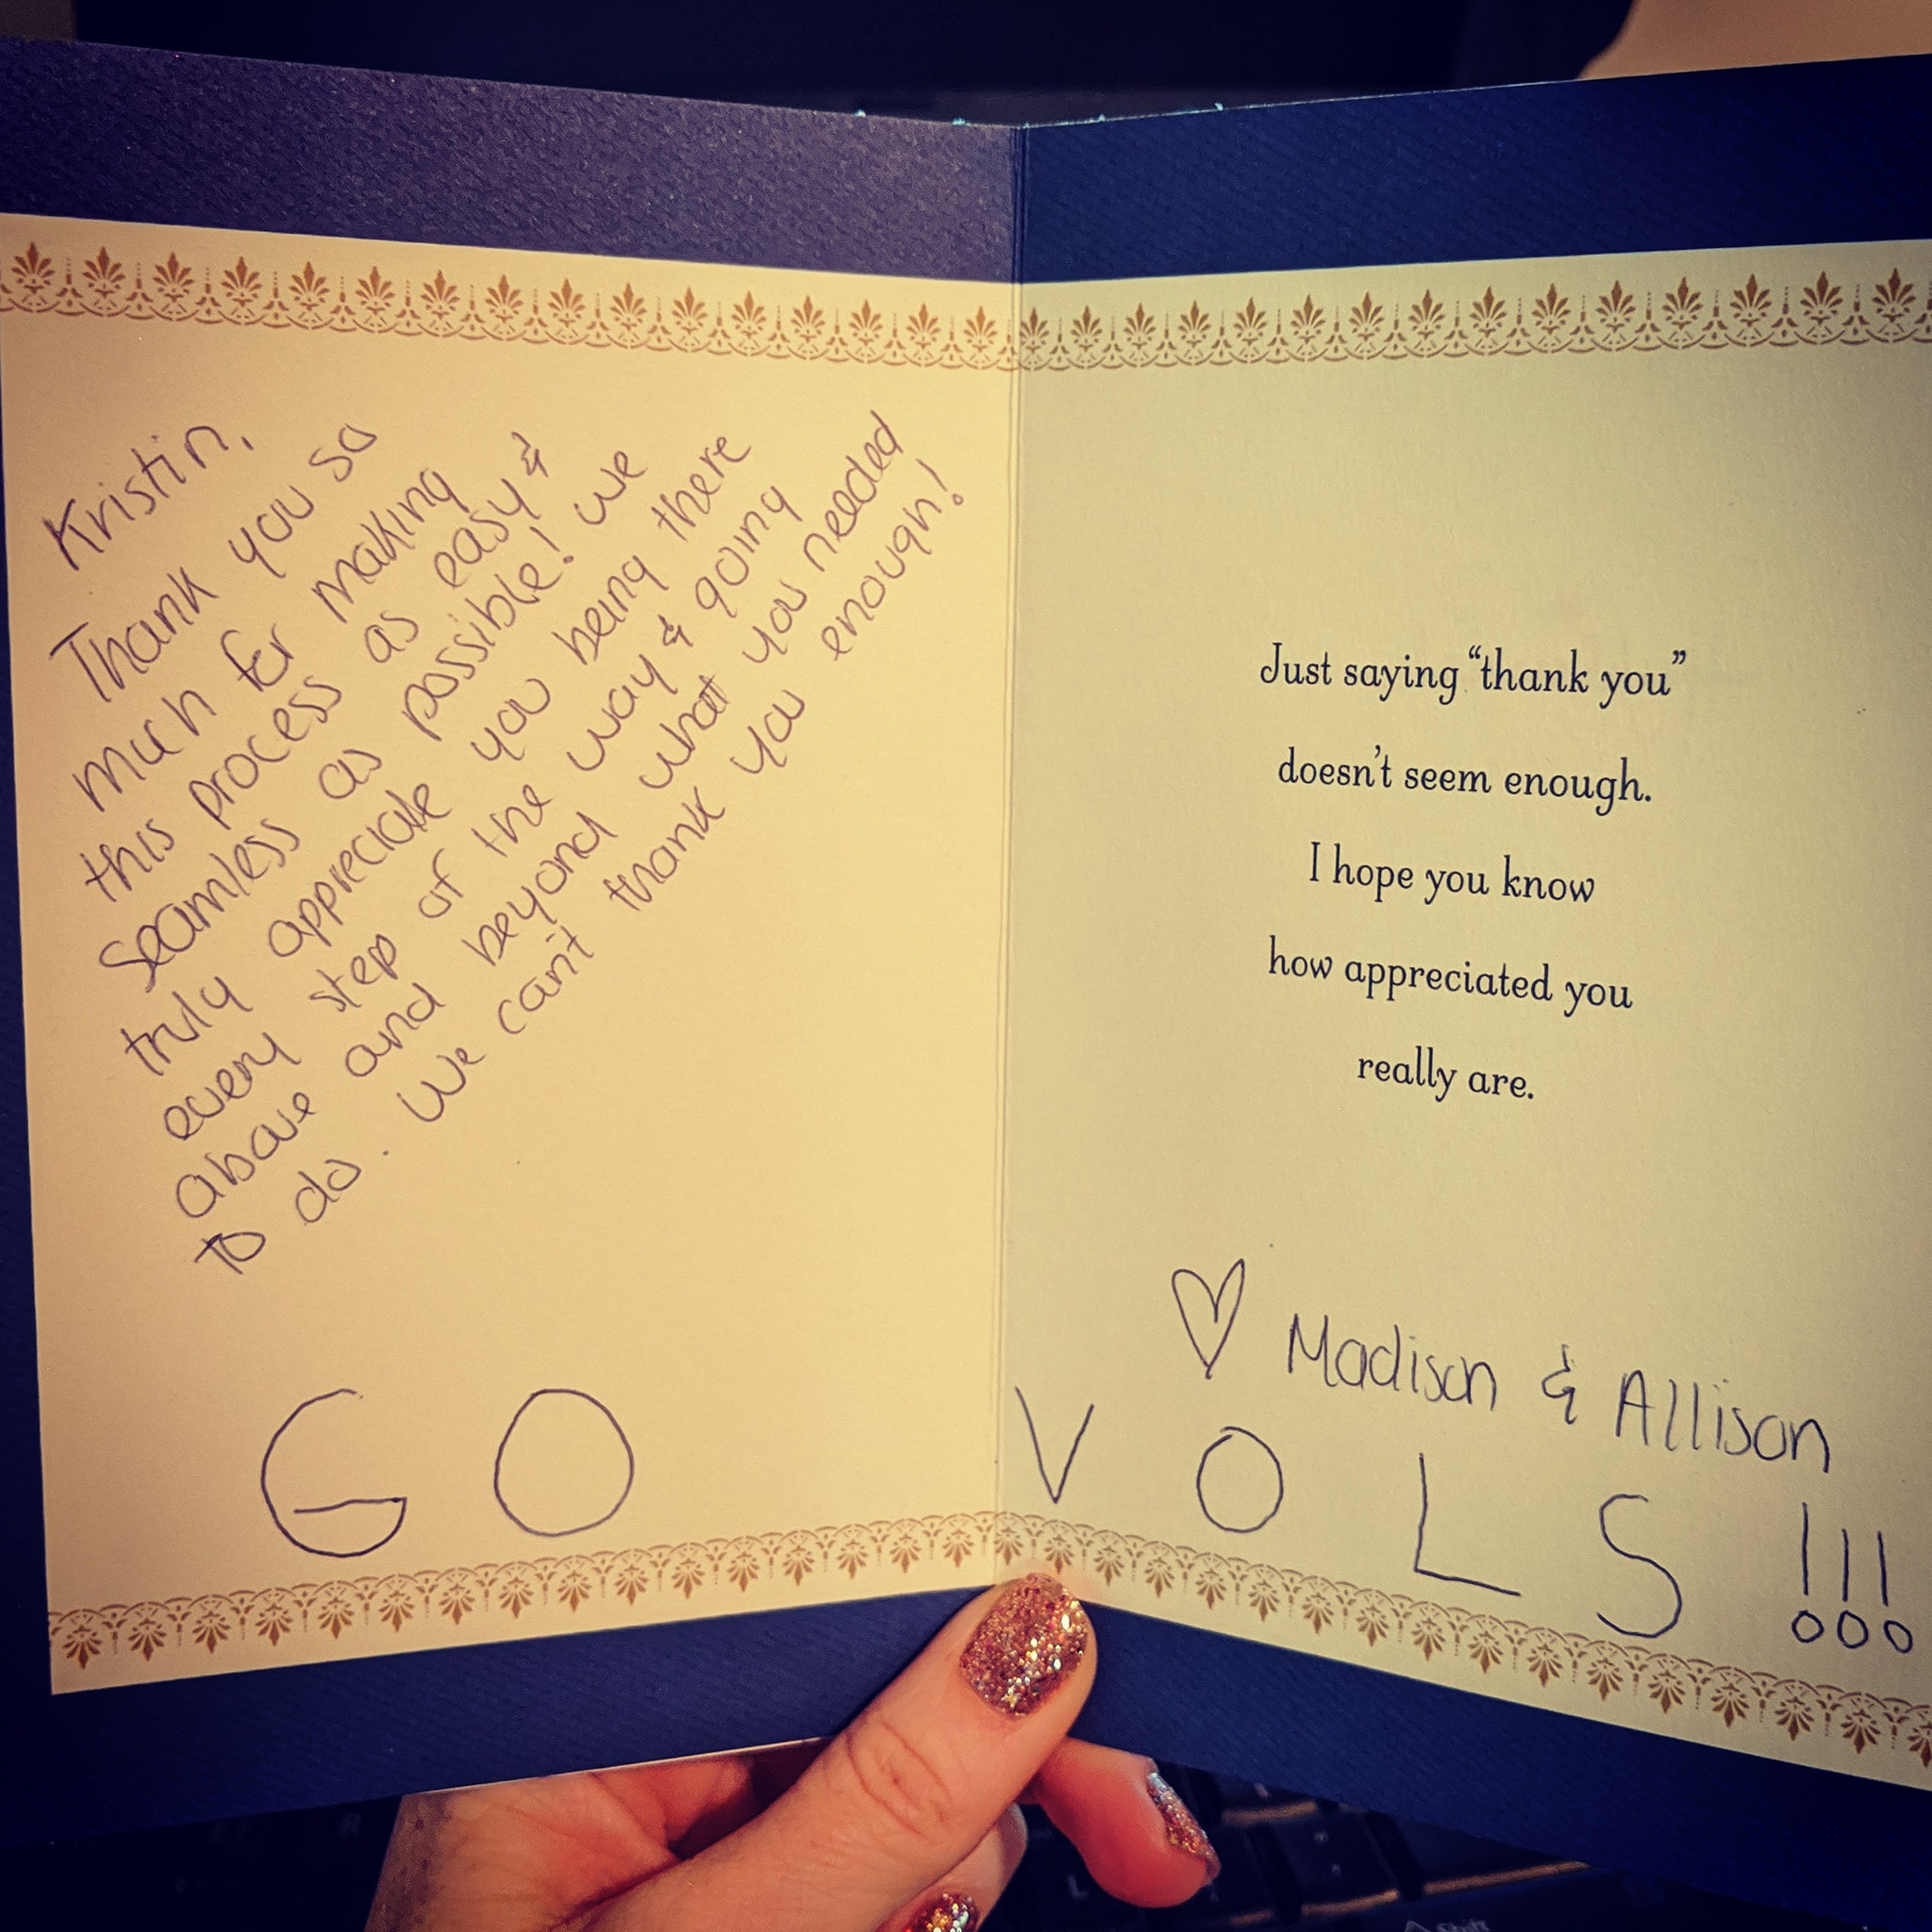 Kristin,
Thank you so
much for making
this process as easy &
seamless as possible! We
truly appreciate you being there
every step of the way & going
above and beyond what you needed
to do. We can't thank you enough!
Just saying “thank you”
doesn't seem enough.
I hope you know
how appreciated you
really are.
♡ Madison & Allison
GO VOLS!!!
Shift